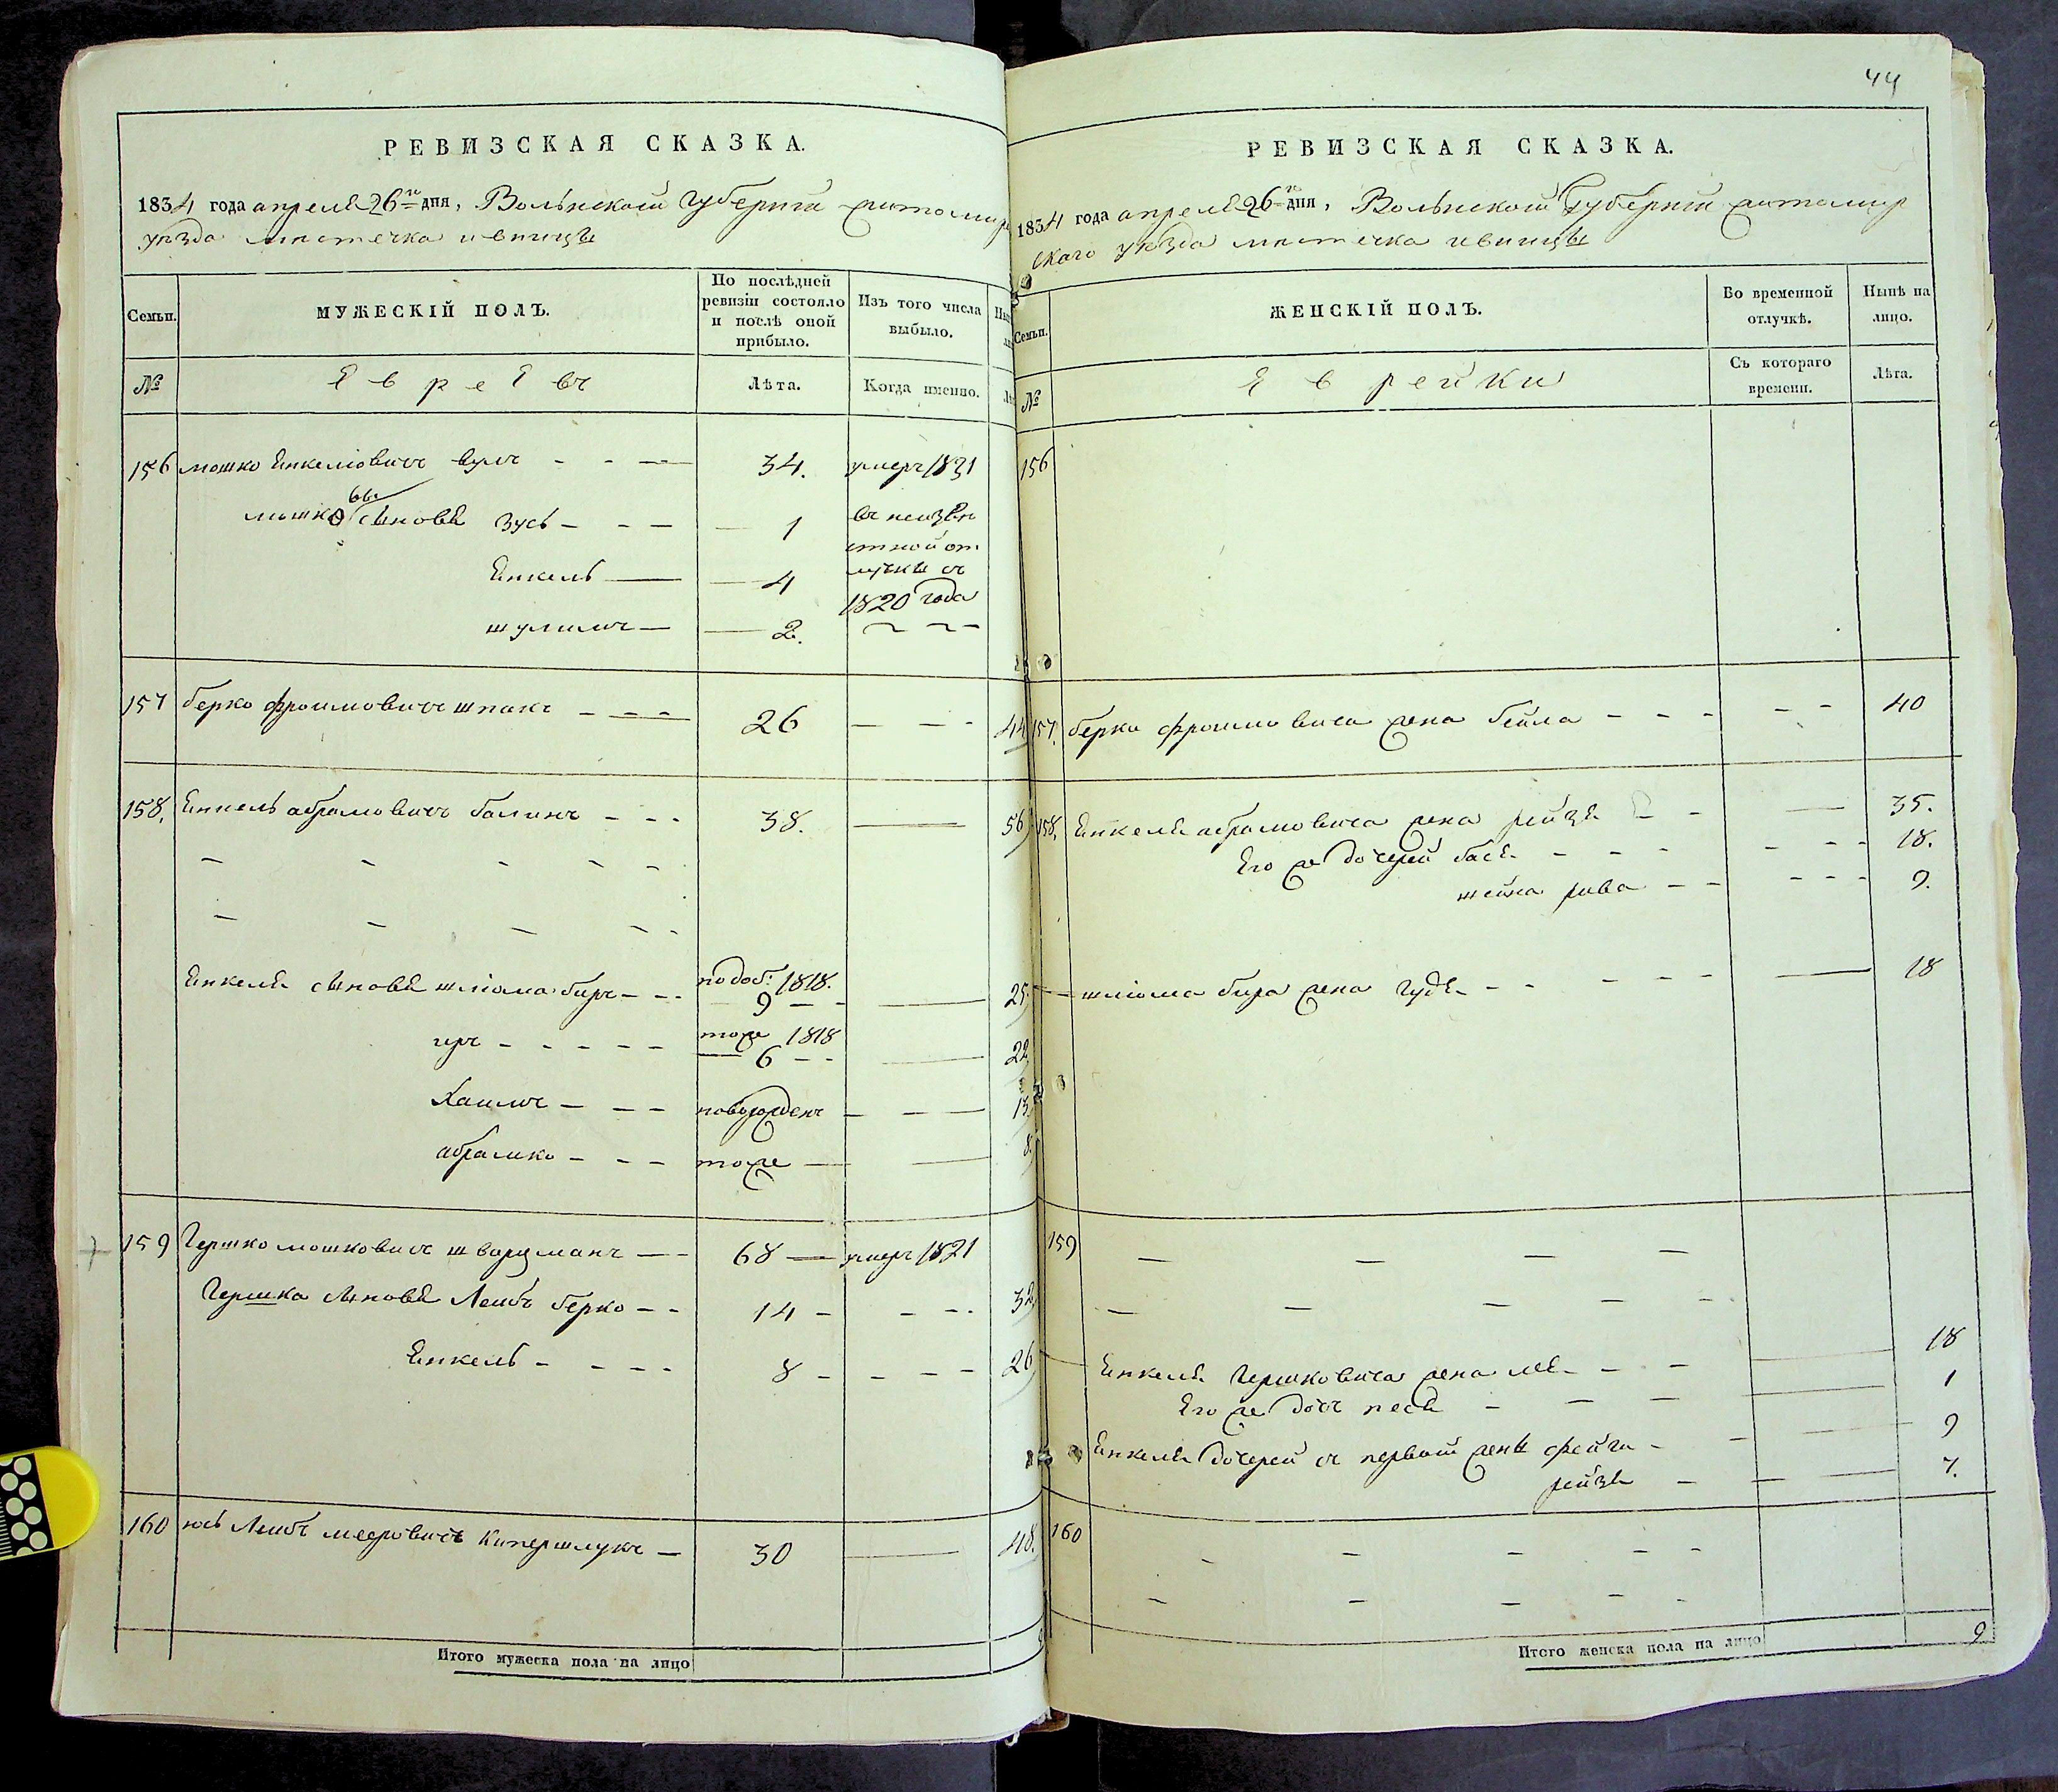 РЕВИЗСКАЯ СКАЗКА.
1834 года апреля 26го дня, Волынской Губернии житомир
уѣзда мѣстечка ивницы
Семьи.
МУЖЕСКІЙ ПОЛЪ.
По послѣдней
ревизіи состояло
и послѣ оной
прибыло.
Изъ того числа
выбыло.
№
Евреевъ
Лѣта.
Когда именно.
156 мошко Янкеліовичъ 34. умеръ 1831
мошковы сыновя Зусь 1 въ неизвѣ
стной от
Янкель 4 лучкѣ съ
1820 года
шулимъ 2.
157 берко фроимовичъ шпакъ 26 44
158. Янкель абрамовичъ балинъ 38. 56
Янкеля сыновя шліома биръ по доб: 1818. 9 25
тоже 1818
6 22
Хаимъ новорожденъ 13
абрамко тоже 8
159 Гершко мошковичъ шварцманъ 68 умеръ 1821
Гершка сыновя Леибъ берко 14 32
Янкель 8 26
160 иось Леибъ мееровичъ Кипершлукъ 30 48.
Итого мужеска пола на лицо
44
РЕВИЗСКАЯ СКАЗКА.
1834 года апреля 26го дня, Волынской Губернии житомир
скаго уѣзда мѣстечка ивницы
Семьи.
ЖЕНСКІЙ ПОЛЪ.
Во временной
отлучкѣ.
Нынѣ на
лицо.
№
Еврейки
Съ котораго
времени.
Лѣта.
156
157. берка фроимовича жена бейла 40
158. Янкеля абрамовича жена рейзя 35.
Его же дочерей бася 18.
шейна рива 9.
шліома бира жена гудя 18
159
Янкеля Гершковича жена лея 18
Его же дочь песя 1
Янкеля дочерей съ первой жены фейга 9
рейзя 7.
160
Итого женска пола на лицо 9